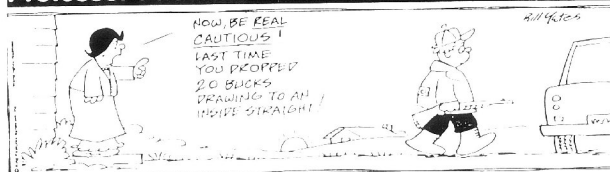 NOW, BE REAL
CAUTIOUS!
LAST TIME
YOU DROPPED
20 BUCKS
DRAWING TO AN
INSIDE STRAIGHT!
Bill Yates